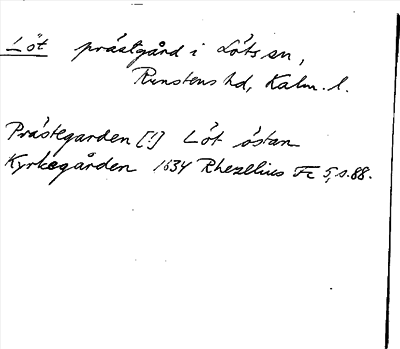 Löt prästgård i Löts sn,
Runstens hd, Kalm. l.
Prästegarden [!] Löt östan
Kyrkegården 1634 Rhezelius Fc 5, s. 88.